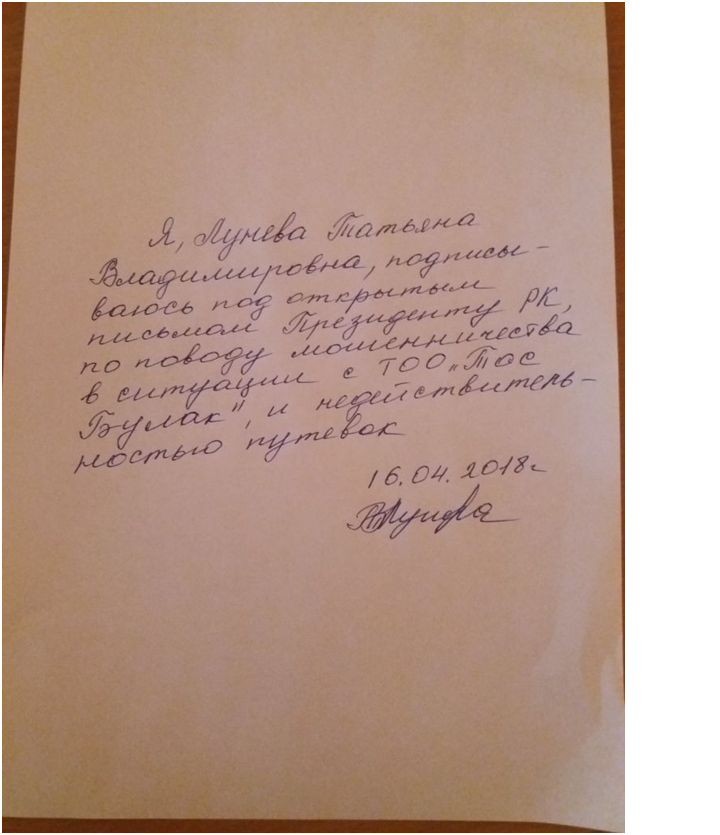 Я, Лунева Татьяна
Владимировна, подписы-
ваюсь под открытым
письмом Президенту РК,
по поводу мошенничества
в ситуации с ТОО „Тас
Булак", и недействитель-
ностью путевок
16.04.2018г